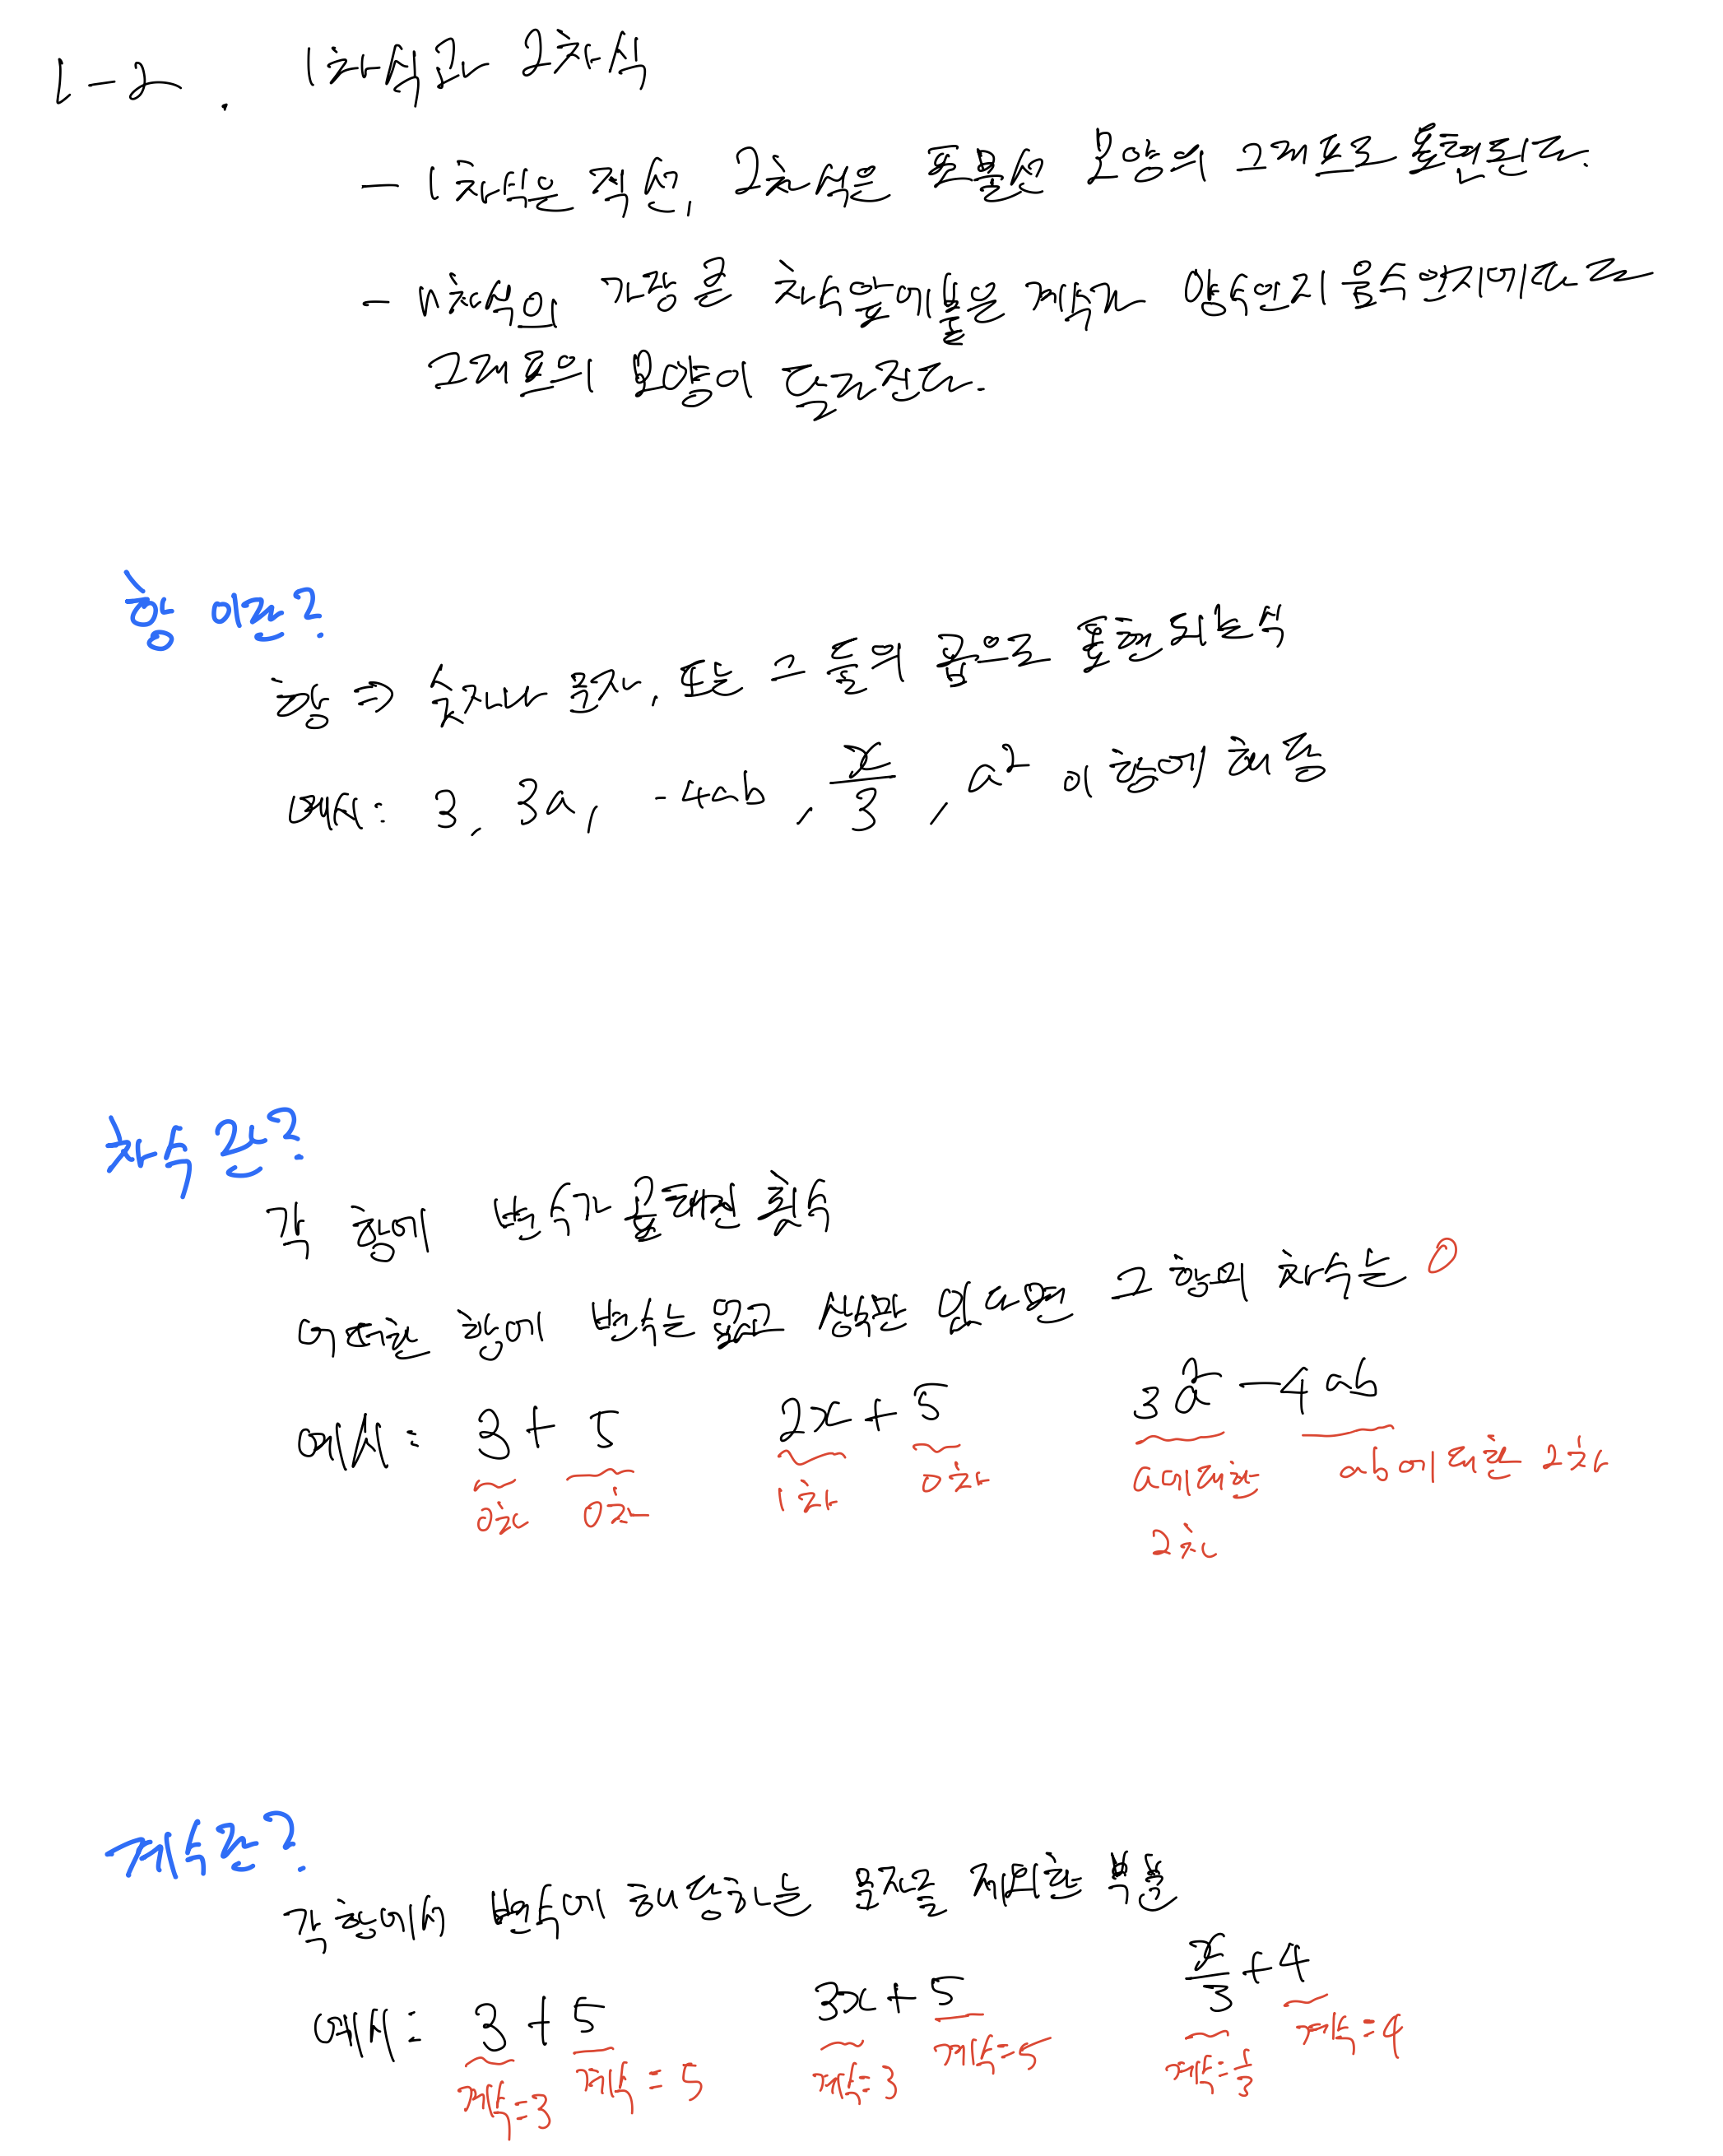 1-2. 1차식과 2차식
- 1차식은 직선, 2차식은 포물선 모양의 그래프로 표현된다.
- n차식의 가장 큰 차수 앞에 붙은 계수가 양수인지 음수인지에 따라
그래프의 모양이 달라진다.
항 이란?
항 ⇒ 숫자나 문자, 또는 그 들의 곱으로 표현되는 식
예시: 3, 3a, -4ab, x/3, a² 이 항에 해당
차수란?
각 항에 변수가 곱해진 횟수
어떠한 항에 변수는 없고 상수만 있다면 그 항의 차수는 0
예시: 3 + 5 2x + 5 3a² - 4ab
0차 0차 1차 0차 a에 대한 ab에 대한 2차
2차
계수란?
각 항에서 변수에 해당하는 문자를 제외한 부분
예시: 3 + 5 3x + 5 x/3 + 4
계수=3 계수=5 계수=3 계수=5 계수=1/3 계수=4